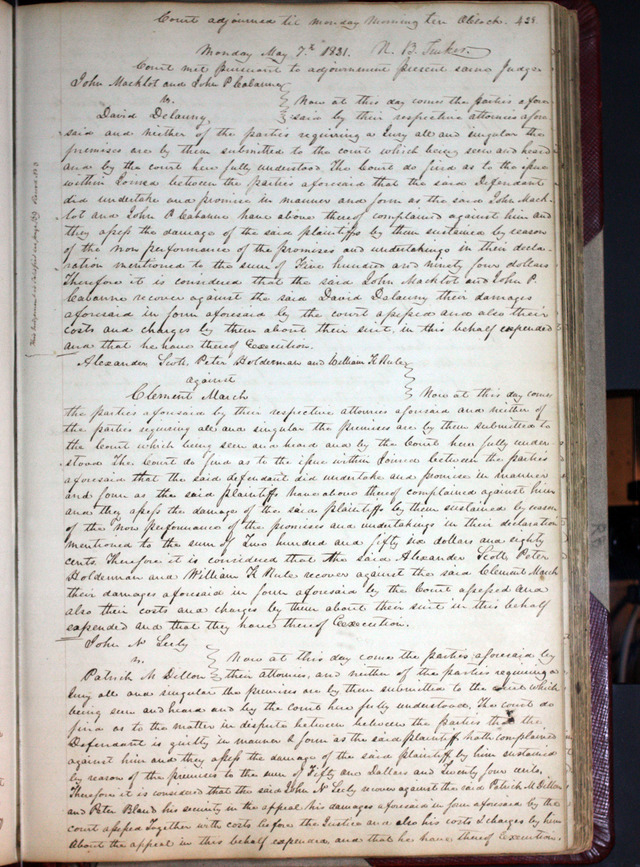 Court adjourned til monday Morning ten Oclock. 429
Monday May 7th 1821. N. B. Tucker
Court met pursuant to adjournment present same Judge
John Macklot and John P Cabanne
vs. Now at this day comes the parties afore
David Delauny said by their respective attornies afore
said and neither of the parties requiring a Jury all and singular the
premises are by them submitted to the court which being seen and heard
and by the court here fully understood. The Court do find as to the issue
within Joined between the parties aforesaid that the said Defendant
did undertake and promise in manner and form as the said John Mack-
lot and John P Cabanne have above thereof complained against him and
they assess the damage of the said plaintiffs by them sustained by reason
of the Non performance of the promises and undertakings in their decla-
ration mentioned to the sum of Five hundred and ninety four dollars
Therefore it is considered that the said John Macklot and John P.
Cabanne recover against the said David Delauny their damages
aforesaid in form aforesaid by the court assessed and also their
costs and charges by them about their suit, in this behalf expended
and that he have thereof Execution.
Alexander Scott Peter Holderman and William K Rule
against
Clement March Now at this day comes
the parties aforesaid by their respective attornies aforesaid and neither of
the parties requiring all and singular the premises are by them submitted to
the Court which being seen and heard and by the Court here fully under-
stood The Court do find as to the issue within Joined between the parties
aforesaid that the said defendant did undertake and promise in manner
and form as the said plaintiffs have above thereof complained against him
and they assess the damage of the said plaintiffs by them sustained by reason
of the Non performance of the promises and undertakings in their declaration
mentioned to the sum of Two hundred and fifty six dollars and eighty
cents. Therefore it is considered that the said Alexander Scott Peter
Holderman and William K Rule recover against the said Clement March
their damages aforesaid in form aforesaid by the Court assessed and
also their costs and charges by them about their suit in this behalf
expended and that they have thereof Execution.
John N Seely
vs. Now at this day come the parties aforesaid by
Patrick M Dillon their attornies, and neither of the parties requiring a
Jury all and singular the premises are by them submitted to the Court which
being seen and heard and by the court here fully understood, The court do
find as to the matter in dispute between between the parties that the
Defendant is guilty in manner & form as the said plaintiff hath complained
against him and they assess the damage of the said plaintiff by him sustained
by reason of the premises to the sum of Fifty one Dollars and Twenty four cents,
Therefore it is considered that the said John N Seely recover against the said Patrick M Dillon
and Peter Bland his security in the appeal his damages aforesaid in form aforesaid by the
court assessed Together with costs before the Justice and also his costs & charges by him
About the appeal in this behalf expended, and that he have thereof Execution.